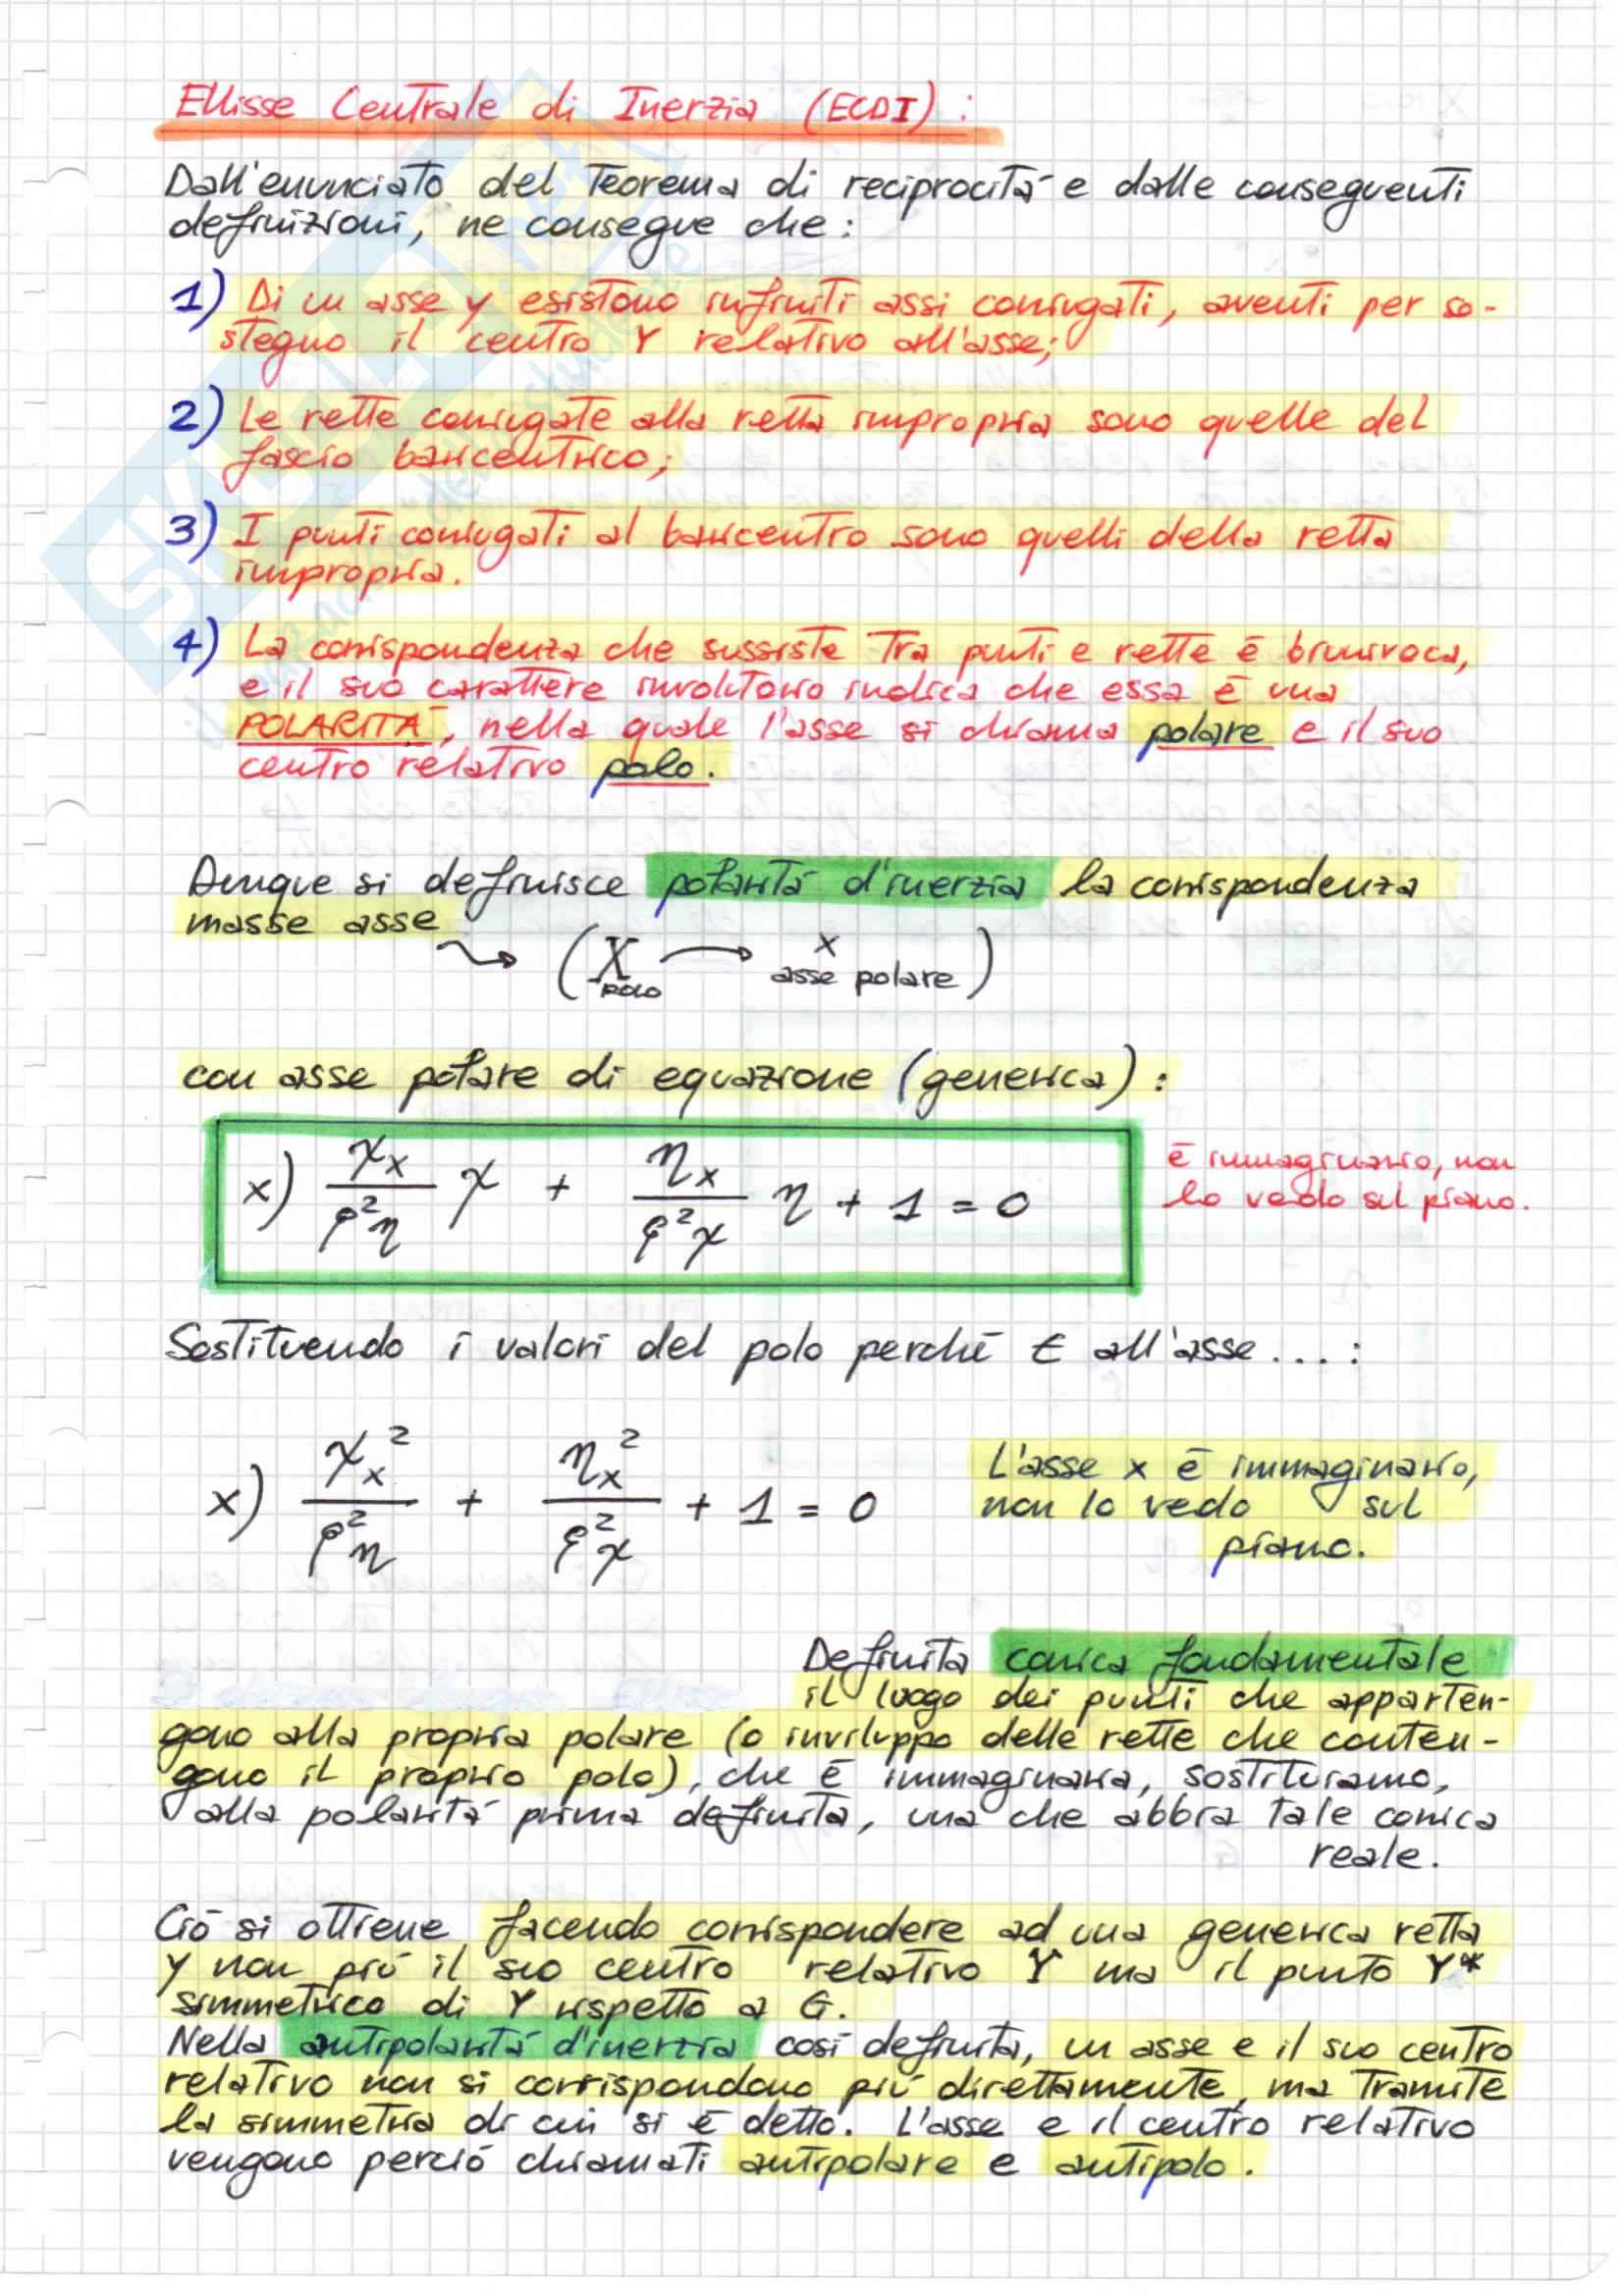 Ellisse Centrale di Inerzia (ECDI):
Dall'enunciato del Teorema di reciprocità e dalle conseguenti
definizioni, ne consegue che:
1) Di un asse y esistono infiniti assi coniugati, aventi per so-
stegno il centro Y relativo all'asse;
2) Le rette coniugate alla retta impropria sono quelle del
fascio baricentrico;
3) I punti coniugati al baricentro sono quelli della retta
impropria.
4) La corrispondenza che sussiste Tra punti e rette è biunivoca,
e il suo carattere involutorio indica che essa è una
POLARITÀ, nella quale l'asse si chiama polare e il suo
centro relativo polo.
Dunque si definisce polarità d'inerzia la corrispondenza
masse asse
(X → x)
polo asse polare
con asse polare di equazione (generica):
x) χx/ρ²η χ + ηx/ρ²χ η + 1 = 0
è immaginario, non
lo vedo sul piano.
Sostituendo i valori del polo perché ∈ all'asse...:
x) χx²/ρ²η + ηx²/ρ²χ + 1 = 0
L'asse x è immaginario,
non lo vedo sul
piano.
Definita conica fondamentale
il luogo dei punti che apparten-
gono alla propria polare (o inviluppo delle rette che conten-
gono il proprio polo), che è immaginaria, sostituiamo,
alla polarità prima definita, una che abbia tale conica
reale.
Ciò si ottiene facendo corrispondere ad una generica retta
y non più il suo centro relativo Y ma il punto Y*
simmetrico di Y rispetto a G.
Nella antipolarità d'inerzia così definita, un asse e il suo centro
relativo non si corrispondono più direttamente, ma tramite
la simmetria di cui si è detto. L'asse e il centro relativo
vengono perciò chiamati antipolare e antipolo.